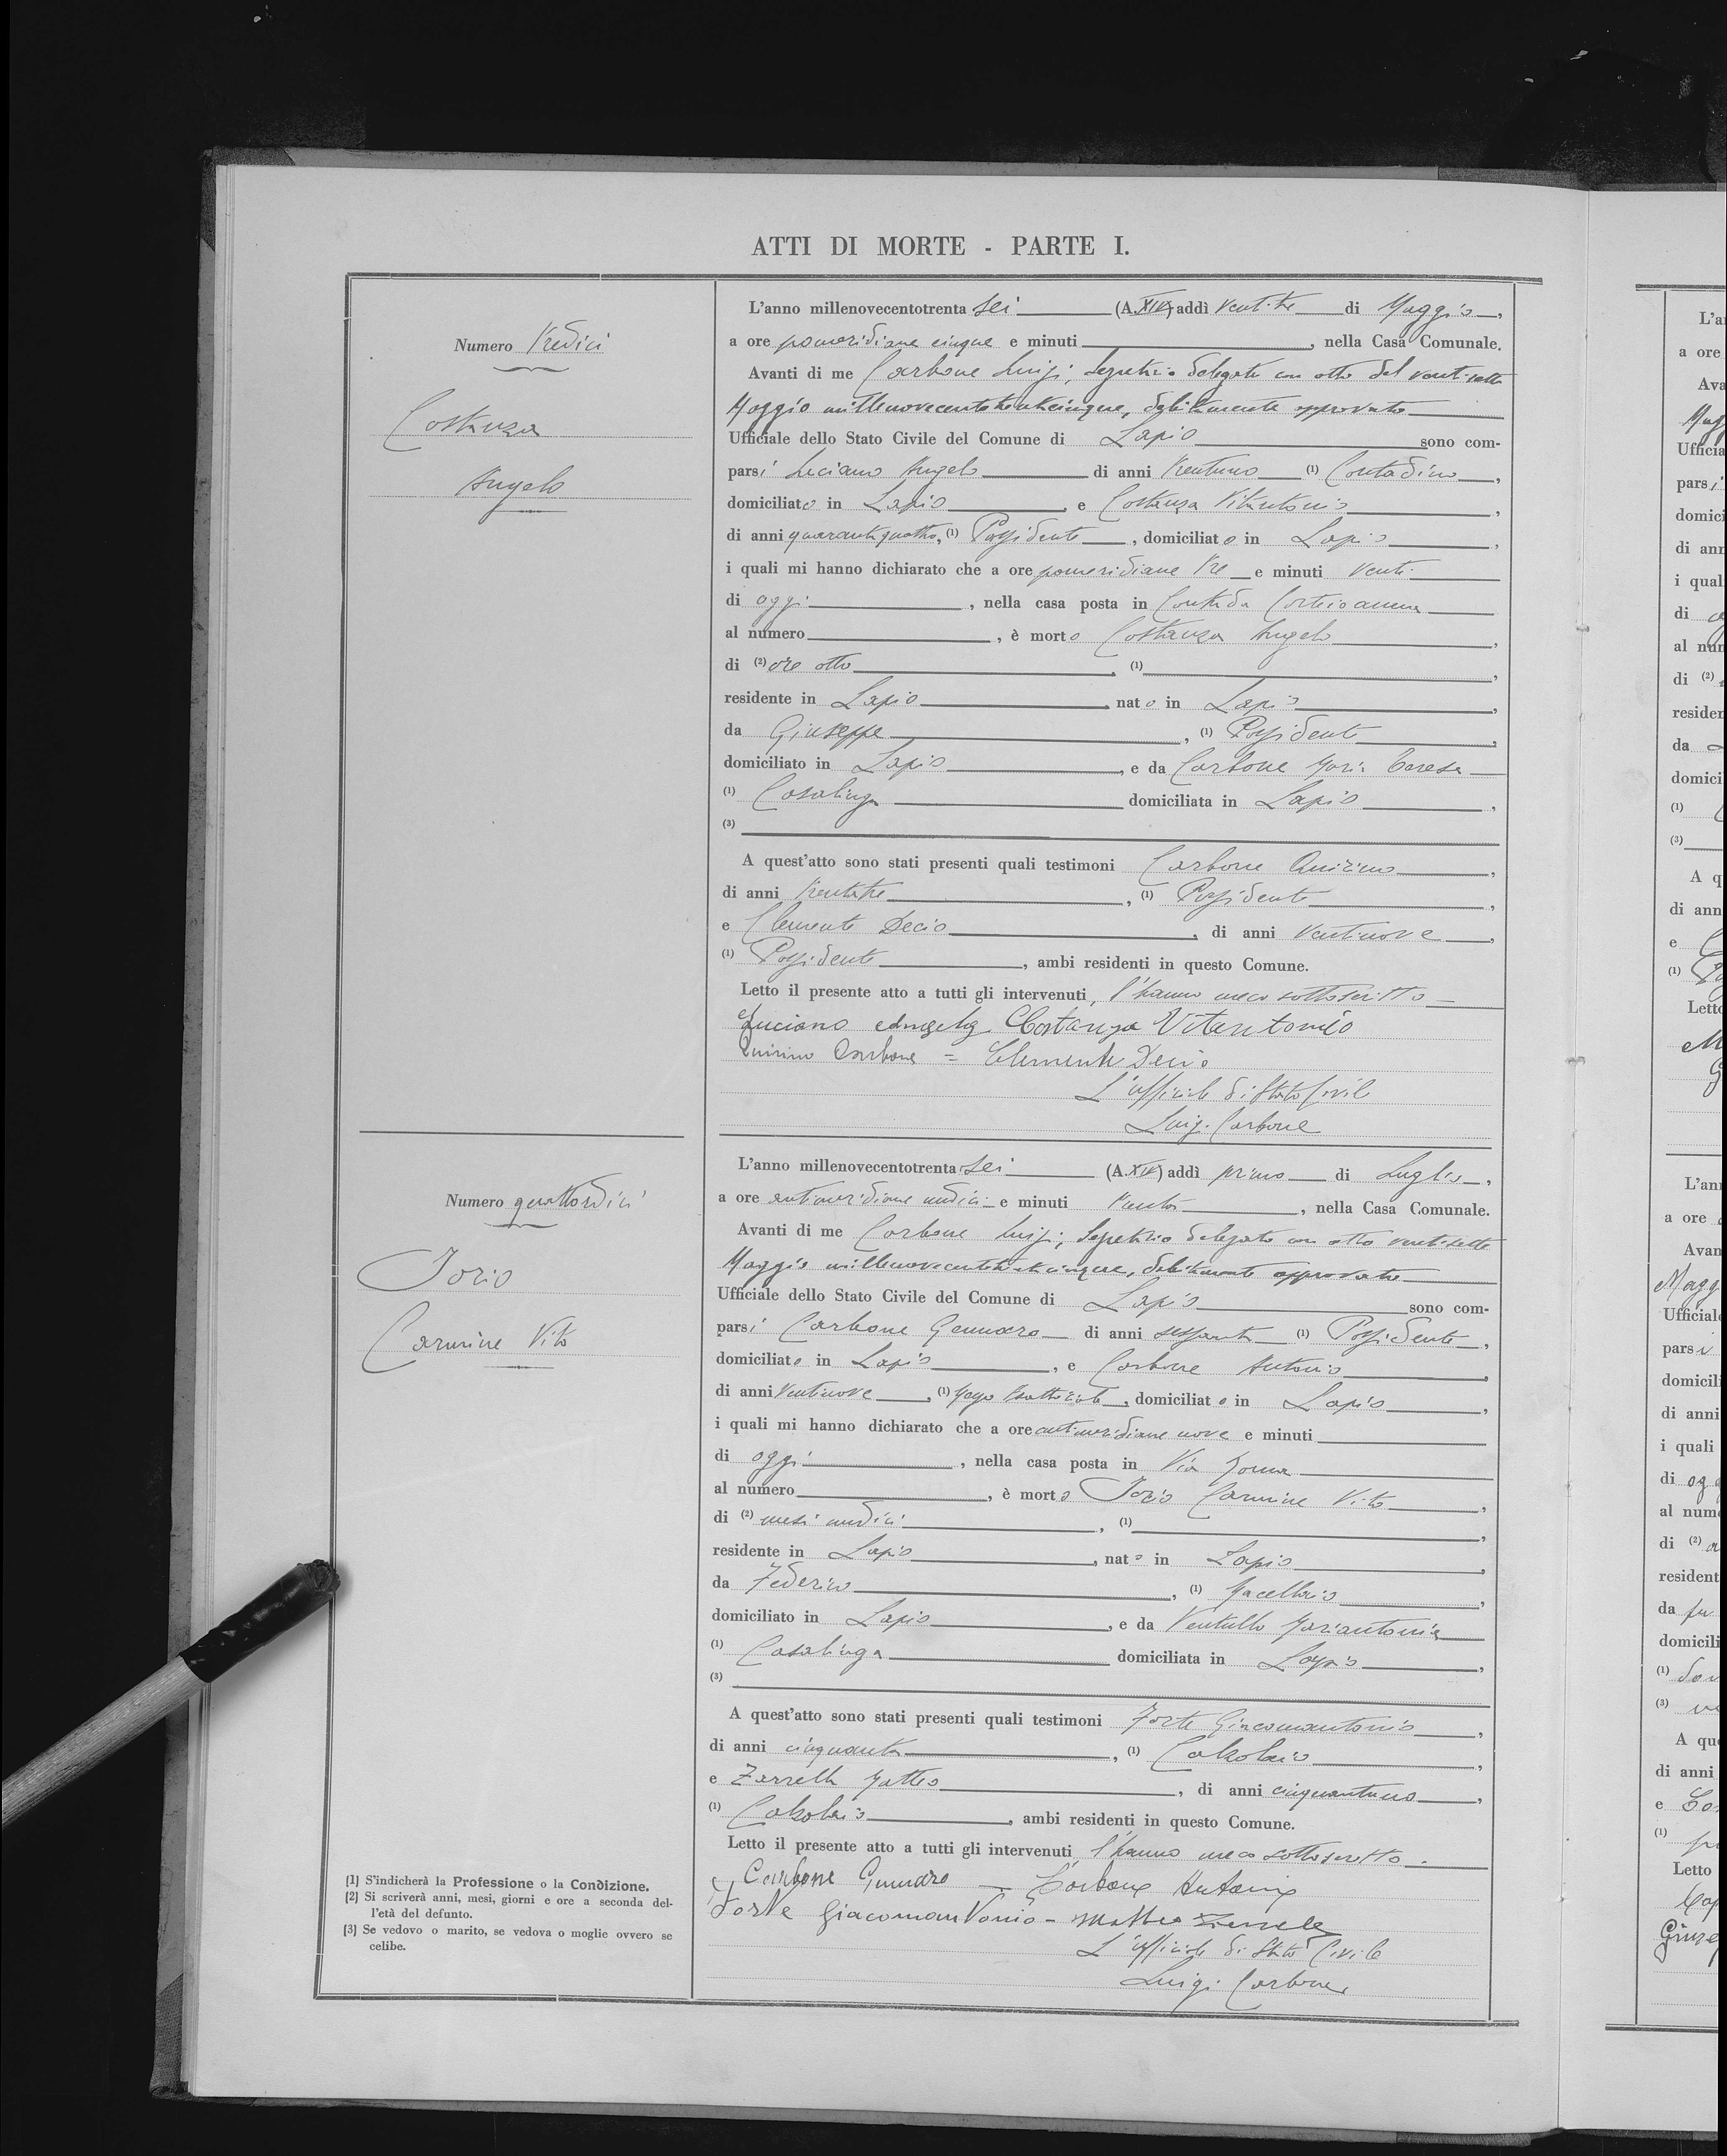 ATTI DI MORTE - PARTE I.
Numero Tredici
Costanza
Angelo
L'anno millenovecentotrenta sei (A. XIV) addì ventitre di Maggio,
a ore pomeridiane cinque e minuti , nella Casa Comunale.
Avanti di me Carbone Luigi, Segretario delegato con atto del ventisette
Maggio millenovecentotrentacinque, debitamente approvato
Ufficiale dello Stato Civile del Comune di Lapio sono com-
parsi Luciano Angelo di anni trentuno (1) Contadino,
domiciliato in Lapio, e Costanza Vitantonio,
di anni quarantaquattro, (1) Possidente, domiciliato in Lapio,
i quali mi hanno dichiarato che a ore pomeridiane tre e minuti venti
di oggi, nella casa posta in Contrada
al numero , è morto Costanza Angelo,
di (2) ore otto, (1) ,
residente in Lapio, nato in Lapio,
da Giuseppe, (1) Possidente,
domiciliato in Lapio, e da Carbone Maria Teresa
(1) Casalinga domiciliata in Lapio,
(3)
A quest'atto sono stati presenti quali testimoni Carbone Quirino,
di anni trentatre, (1) Possidente,
e Clemente Decio, di anni ventinove,
(1) Possidente, ambi residenti in questo Comune.
Letto il presente atto a tutti gli intervenuti, l'hanno meco sottoscritto
Luciano Angelo Costanza Vitantonio
Quirino Carbone = Clemente Decio
L'ufficiale di Stato Civile
Luigi Carbone
Numero quattordici
Iorio
Carmine Vito
L'anno millenovecentotrenta sei (A. XIV) addì primo di Luglio,
a ore antimeridiane undici e minuti trenta, nella Casa Comunale.
Avanti di me Carbone Luigi, Segretario delegato con atto ventisette
Maggio millenovecentotrentacinque, debitamente approvato
Ufficiale dello Stato Civile del Comune di Lapio sono com-
parsi Carbone Gennaro di anni sessanta (1) Possidente,
domiciliato in Lapio, e Carbone Antonio,
di anni ventinove, (1) Messo Esattoriale, domiciliato in Lapio,
i quali mi hanno dichiarato che a ore antimeridiane nove e minuti
di oggi, nella casa posta in Via Roma
al numero , è morto Iorio Carmine Vito,
di (2) mesi undici, (1) ,
residente in Lapio, nato in Lapio,
da Federico, (1) Macellaio,
domiciliato in Lapio, e da Ventullo Mariantonia
(1) Casalinga domiciliata in Lapio,
(3)
A quest'atto sono stati presenti quali testimoni Forte Giacomantonio,
di anni cinquanta, (1) Calzolaio,
e Zarrella Matteo, di anni cinquantuno,
(1) Calzolaio, ambi residenti in questo Comune.
Letto il presente atto a tutti gli intervenuti l'hanno meco sottoscritto.
Carbone Gennaro — Carbone Antonio
Forte Giacomantonio - Matteo
L'ufficiale di Stato Civile
Luigi Carbone
(1) S'indicherà la Professione o la Condizione.
(2) Si scriverà anni, mesi, giorni e ore a seconda del-
l'età del defunto.
(3) Se vedovo o marito, se vedova o moglie ovvero se
celibe.